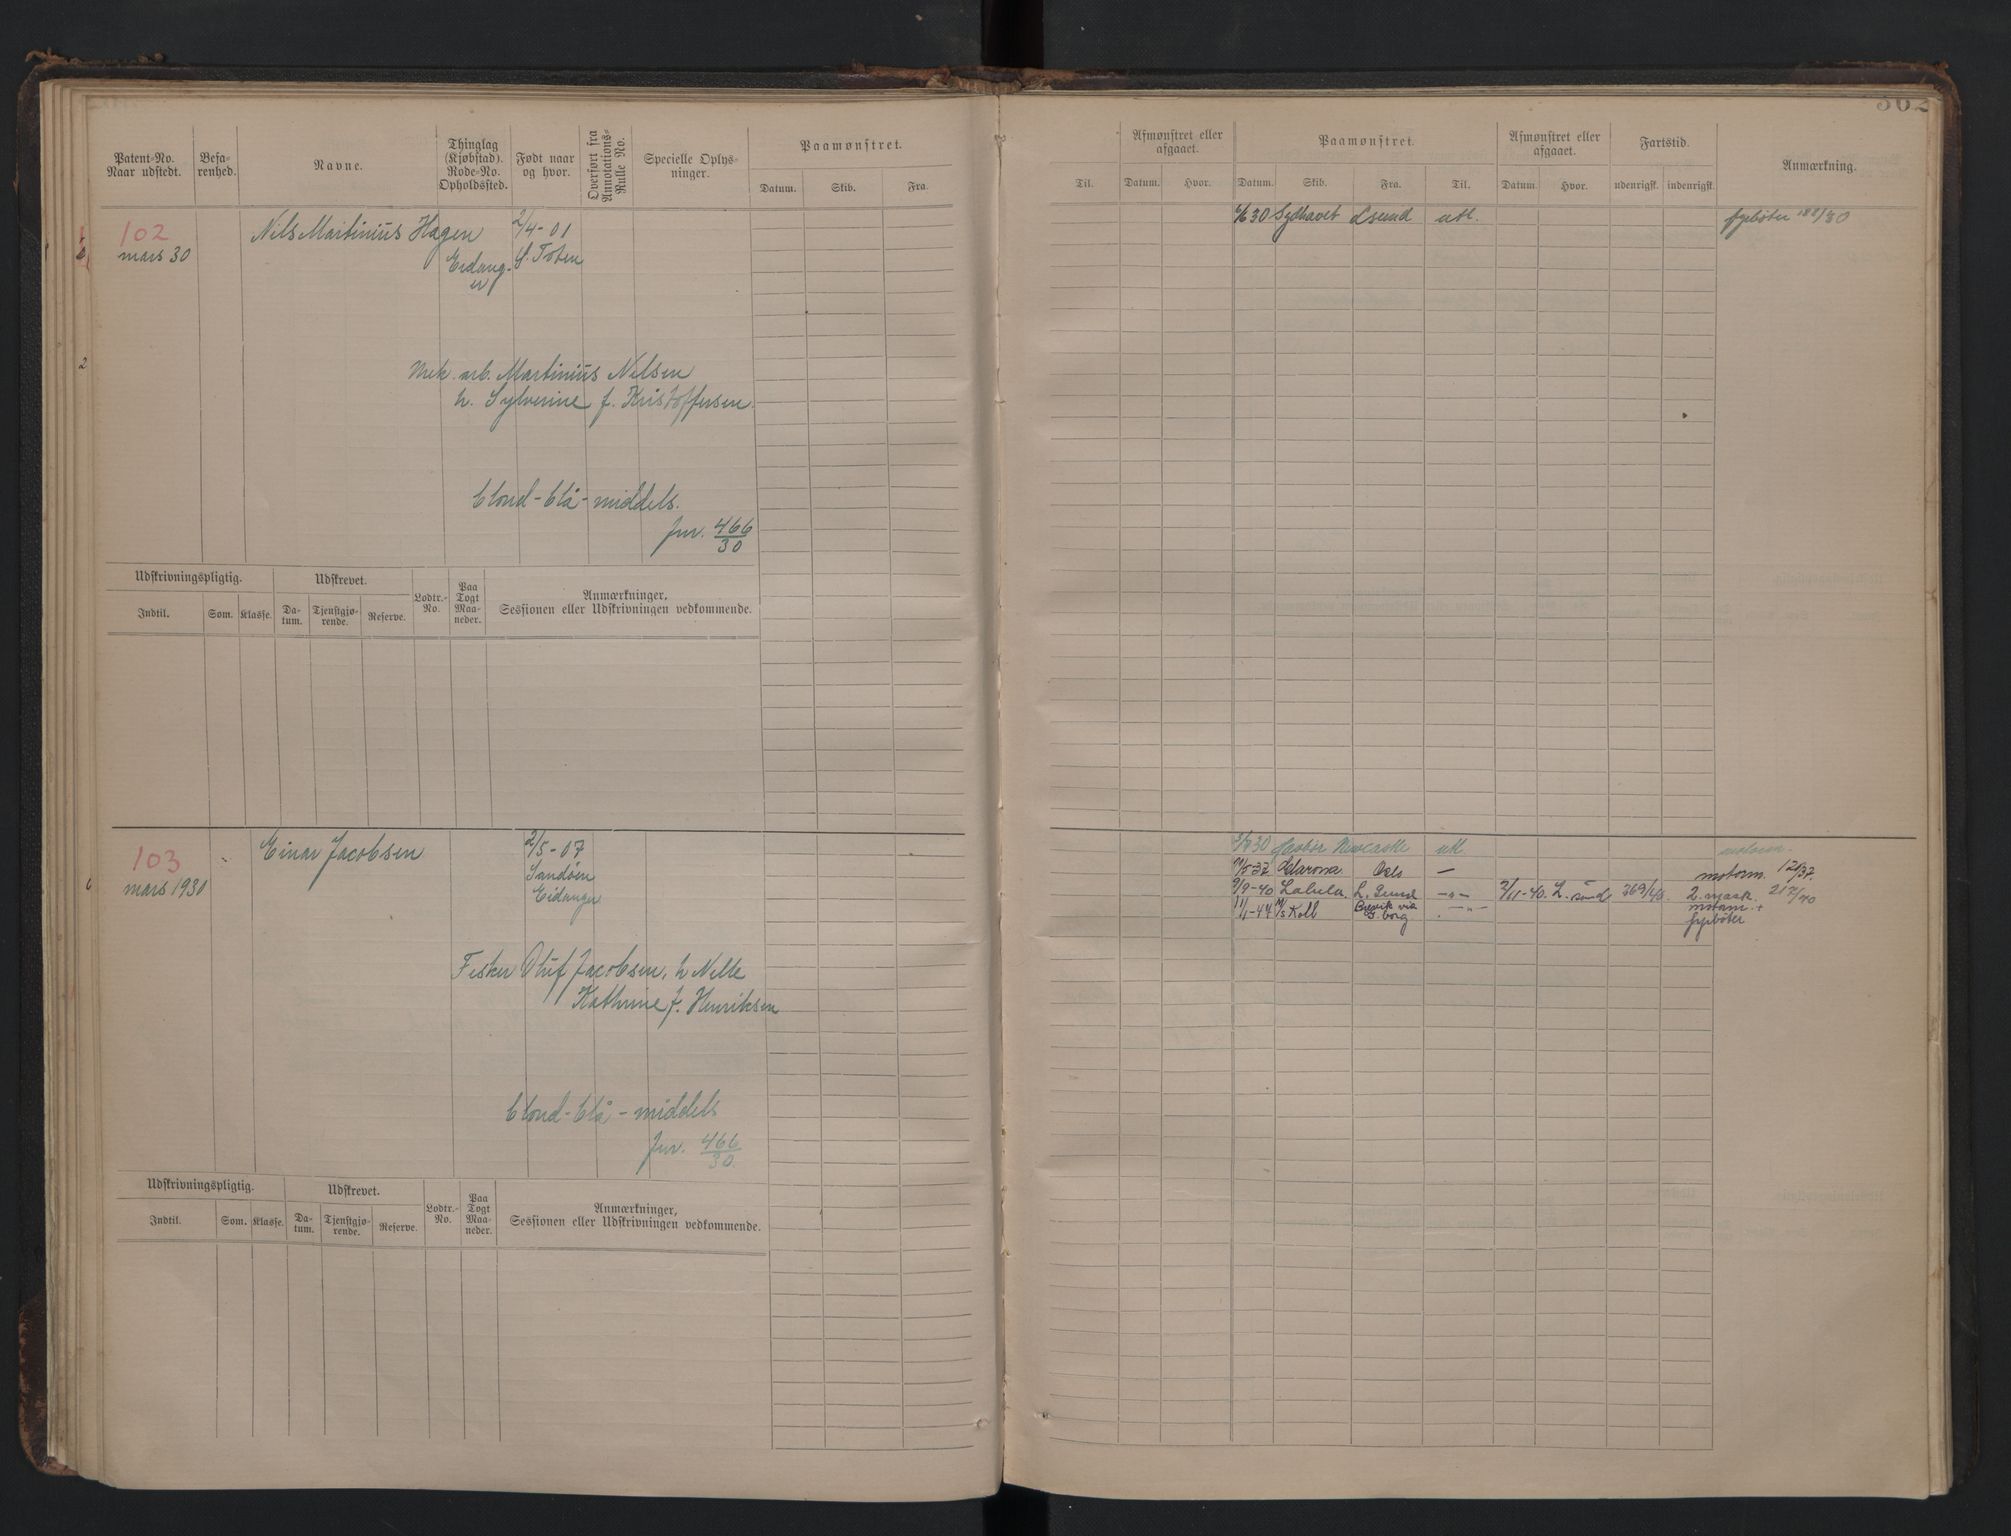 302
Patent-No. Naar udstedt.
Befarenhed.
Navne.
Thinglag (Kjøbstad). Rode-No. Opholdssted.
Født naar og hvor.
Overført fra Annotations-Rulle No.
Specielle Oplysninger.
Paamønstret.
Datum. Skib. Fra.
102
mars 30
Nils Martinius Hagen
Eidanger
2/4-01
Toten
Mek. arb. Martinius Nilsen
h. Sylverine f. Kristoffersen.
blond-blå-middels.
Jnr. 466/30
Udskrivningspligtig. Udskrevet. Lodtr.-No. Paa Togt Maaneder. Anmærkninger, Sessionen eller Udskrivningen vedkommende.
Indtil. Som. Klasse. Datum. Tjenstgjørende. Reserve.
103
mars 1930
Einar Jacobsen
2/5-07
Sandøen
Eidanger
Fisker Oluf Jacobsen, h Nelle
Kathrine f. Henriksen
blond-blå-middels
Jnr. 466/30
Udskrivningspligtig. Udskrevet. Lodtr.-No. Paa Togt Maaneder. Anmærkninger, Sessionen eller Udskrivningen vedkommende.
Indtil. Som. Klasse. Datum. Tjenstgjørende. Reserve.
Til.
Afmønstret eller afgaaet.
Datum. Hvor.
Paamønstret.
Datum. Skib. Fra. Til.
Afmønstret eller afgaaet.
Datum. Hvor.
Fartstid.
udenrigsk. indenrigsk.
Anmærkning.
30 Sydhavet Lsund utl. fyrbøter 188/30
30 Newcastle utl. motorm.
Oslo — motorm. 121/37.
9/9-40 Lalula L. Sund —"— 2/11-40. L. sund 369/40. 2. mask. 217/40
11/1-47 M/S Kolb Brevik via —"— motorm. +
borg fyrbøter